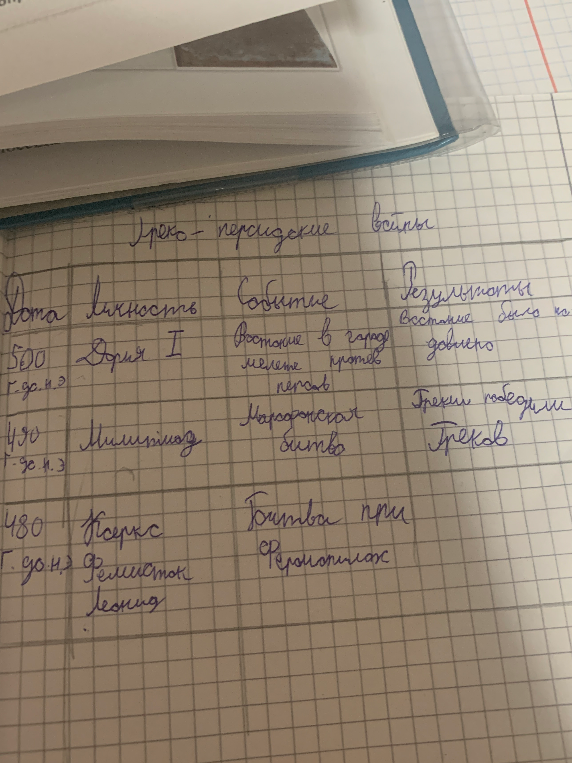 Греко-персидские войны
Дата Личность Событие Результаты
500
г. до н.э
Дория I
Востание в городе
мелете против
персов
Востание было по
довлено
490
г. до н.э
Милитиад
Марафонская
битва
Греки победили
Греков
480
г. до н.э
Ксеркс
Фемисток
Леонид
Битва при
Фермопилах